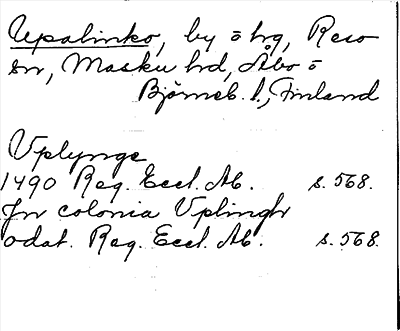 Upalinko, by o hg, Reso
sn, Masku hd, Åbo o
Björneb. l., Finland
Vplynge
1490 Reg. Eccl. Ab. s. 568.
Jn colonia Vplingh
odat. Reg. Eccl. Ab. s. 568.